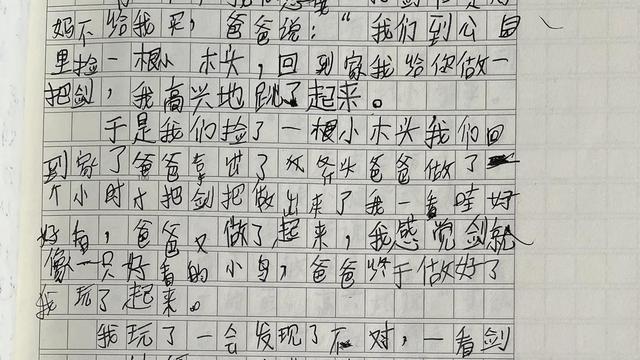 妈不给我买，爸爸说：“我们到公园
里捡一根小木头，回到家我给你做一
把剑，我高兴地跳了起来。
于是我们捡了一根小木头我们回
到家了爸爸拿出了 爸爸做了
个小时才把剑把做出来了我一看哇好
好看，爸爸又做了起来，我感觉剑就
像一只好看的小鸟，爸爸终于做好了
我玩了起来。
我玩了一会发现了不对，一看剑